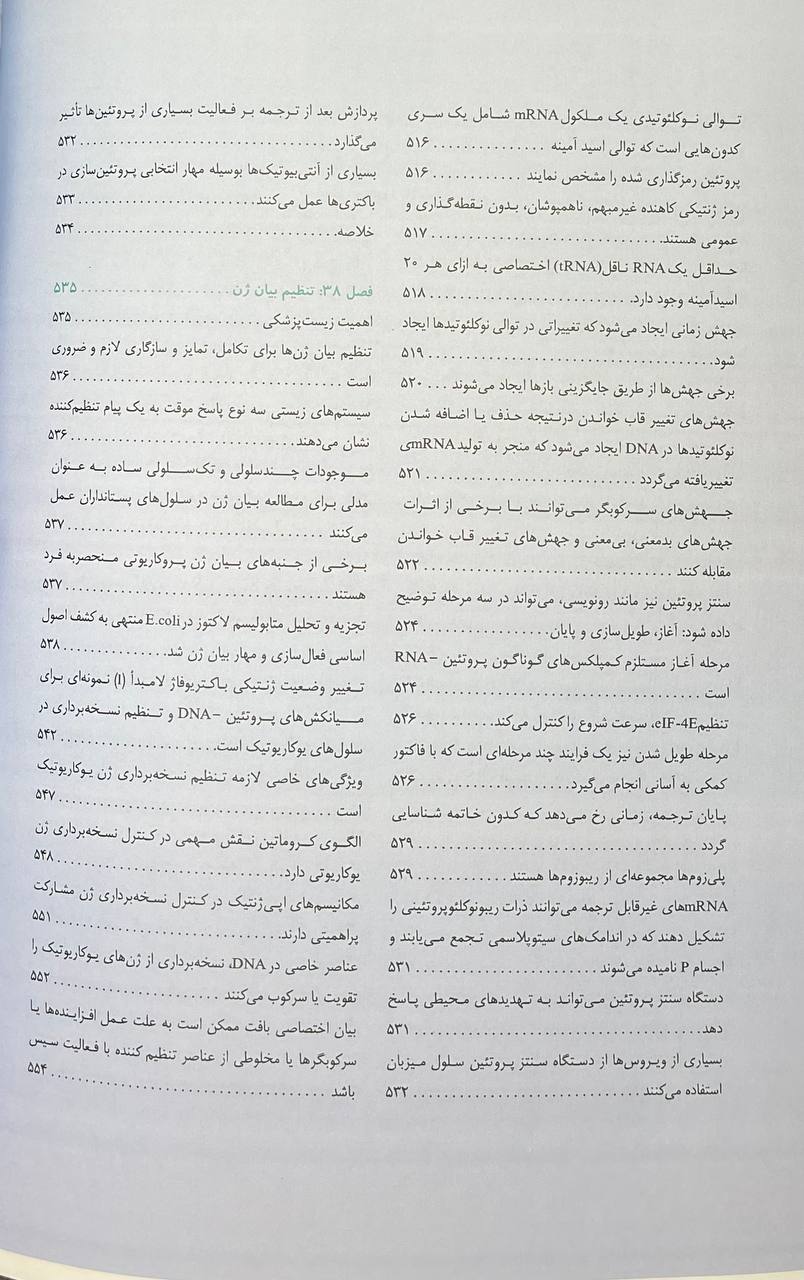 توالی نوکلئوتیدی یک ملکول mRNA شامل یک سری
کدون‌هایی است که توالی اسید آمینه ............... ۵۱۶
پروتئین رمزگذاری شده را مشخص نمایند ............ ۵۱۶
رمز ژنتیکی کاهنده غیرمبهم، ناهمپوشان، بدون نقطه‌گذاری و
عمومی هستند................................. ۵۱۷
حداقل یک RNA ناقل(tRNA) اختصاصی به ازای هر ۲۰
اسیدآمینه وجود دارد. ........................... ۵۱۸
جهش زمانی ایجاد می‌شود که تغییراتی در توالی نوکلئوتیدها ایجاد
شود........................................ ۵۱۹
برخی جهش‌ها از طریق جایگزینی بازها ایجاد می‌شوند ... ۵۲۰
جهش‌های تغییر قاب خواندن درنتیجه حذف یا اضافه شدن
نوکلئوتیدها در DNA ایجاد می‌شود که منجر به تولید mRNAی
تغییریافته می‌گردد ............................. ۵۲۱
جهش‌های سرکوبگر می‌توانند با برخی از اثرات
جهش‌های بدمعنی، بی‌معنی و جهش‌های تغییر قاب خواندن
مقابله کنند .................................. ۵۲۲
سنتز پروتئین نیز مانند رونویسی، می‌تواند در سه مرحله توضیح
داده شود: آغاز، طویل‌سازی و پایان................. ۵۲۴
مرحله آغاز مستلزم کمپلکس‌های گوناگون پروتئین –RNA
است ....................................... ۵۲۴
تنظیم eIF-4E، سرعت شروع را کنترل می‌کند.......... ۵۲۶
مرحله طویل شدن نیز یک فرایند چند مرحله‌ای است که با فاکتور
کمکی به آسانی انجام می‌گیرد..................... ۵۲۶
پایان ترجمه، زمانی رخ می‌دهد که کدون خاتمه شناسایی
گردد ....................................... ۵۲۹
پلی‌زوم‌ها مجموعه‌ای از ریبوزوم‌ها هستند ............ ۵۲۹
mRNAهای غیرقابل ترجمه می‌توانند ذرات ریبونوکلئوپروتئینی را
تشکیل دهند که در اندامک‌های سیتوپلاسمی تجمع می‌یابند و
اجسام P نامیده می‌شوند ......................... ۵۳۱
دستگاه سنتز پروتئین می‌تواند به تهدیدهای محیطی پاسخ
دهد........................................ ۵۳۱
بسیاری از ویروس‌ها از دستگاه سنتز پروتئین سلول میزبان
استفاده می‌کنند .............................. ۵۳۲
پردازش بعد از ترجمه بر فعالیت بسیاری از پروتئین‌ها تأثیر
می‌گذارد................................... ۵۳۲
بسیاری از آنتی‌بیوتیک‌ها بوسیله مهار انتخابی پروتئین‌سازی در
باکتری‌ها عمل می‌کنند......................... ۵۳۳
خلاصه..................................... ۵۳۴
فصل ۳۸: تنظیم بیان ژن ...................... ۵۳۵
اهمیت زیست‌پزشکی ........................... ۵۳۵
تنظیم بیان ژن‌ها برای تکامل، تمایز و سازگاری لازم و ضروری
است ....................................... ۵۳۶
سیستم‌های زیستی سه نوع پاسخ موقت به یک پیام تنظیم‌کننده
نشان می‌دهند................................ ۵۳۶
موجودات چندسلولی و تک‌سلولی ساده به عنوان
مدلی برای مطالعه بیان ژن در سلول‌های پستانداران عمل
می‌کنند .................................... ۵۳۷
برخی از جنبه‌های بیان ژن پروکاریوتی منحصربه فرد
هستند ..................................... ۵۳۷
تجزیه و تحلیل متابولیسم لاکتوز در E.coli منتهی به کشف اصول
اساسی فعال‌سازی و مهار بیان ژن شد............... ۵۳۸
تغییر وضعیت ژنتیکی باکتریوفاژ لامبدأ (l) نمونه‌ای برای
میانکنش‌های پروتئین –DNA و تنظیم نسخه‌برداری در
سلول‌های یوکاریوتیک است...................... ۵۴۲
ویژگی‌های خاصی لازمه تنظیم نسخه‌برداری ژن یوکاریوتیک
است ....................................... ۵۴۷
الگوی کروماتین نقش مهمی در کنترل نسخه‌برداری ژن
یوکاریوتی دارد............................... ۵۴۸
مکانیسم‌های اپی‌ژنتیک در کنترل نسخه‌برداری ژن مشارکت
پراهمیتی دارند............................... ۵۵۱
عناصر خاصی در DNA، نسخه‌برداری از ژن‌های یوکاریوتیک را
تقویت یا سرکوب می‌کنند ....................... ۵۵۲
بیان اختصاصی بافت ممکن است به علت عمل افزاینده‌ها یا
سرکوبگرها یا مخلوطی از عناصر تنظیم کننده با فعالیت سیس
باشد ....................................... ۵۵۴